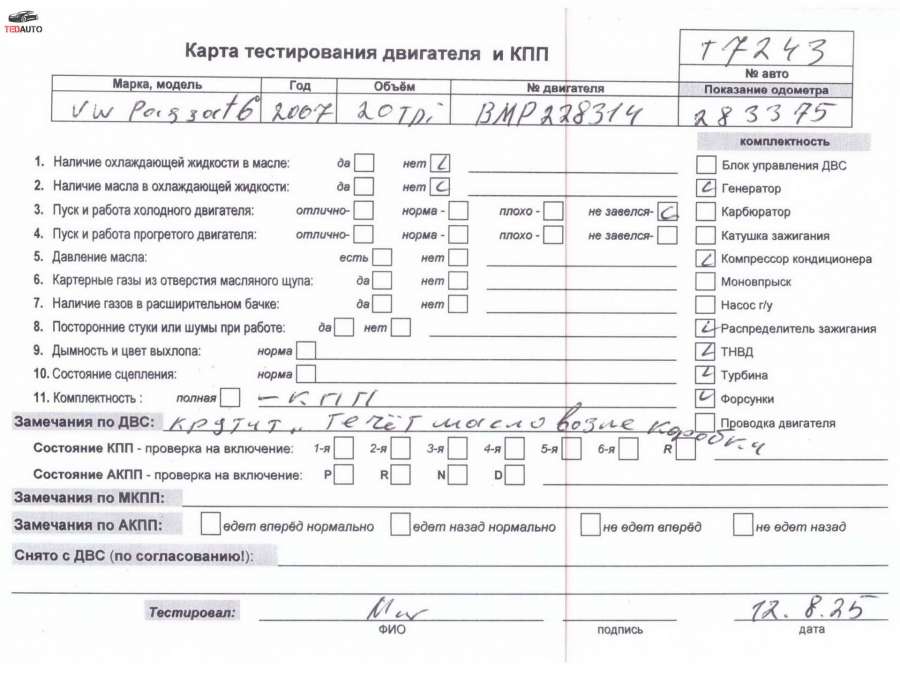 TEDAUTO
Карта тестирования двигателя и КПП
т7243
№ авто
Марка, модель Год Объём № двигателя Показание одометра
VW Passat 6 2007 20TDi BMP228314 283375
комплектность
1. Наличие охлаждающей жидкости в масле: да нет
Блок управления ДВС
2. Наличие масла в охлаждающей жидкости: да нет
Генератор
3. Пуск и работа холодного двигателя: отлично- норма - плохо - не завелся-
Карбюратор
4. Пуск и работа прогретого двигателя: отлично- норма - плохо - не завелся-
Катушка зажигания
5. Давление масла: есть нет
Компрессор кондиционера
6. Картерные газы из отверстия масляного щупа: да нет
Моновпрыск
7. Наличие газов в расширительном бачке: да нет
Насос г/у
8. Посторонние стуки или шумы при работе: да нет
Распределитель зажигания
9. Дымность и цвет выхлопа: норма
ТНВД
10. Состояние сцепления: норма
Турбина
11. Комплектность : полная - КПП
Форсунки
Замечания по ДВС: крутит,, течёт масло возле коробки
Проводка двигателя
Состояние КПП - проверка на включение: 1-я 2-я 3-я 4-я 5-я 6-я R
Состояние АКПП - проверка на включение: P R N D
Замечания по МКПП:
Замечания по АКПП: едет вперёд нормально едет назад нормально не едет вперёд не едет назад
Снято с ДВС (по согласованию!):
Тестировал: 12.8.25
ФИО подпись дата